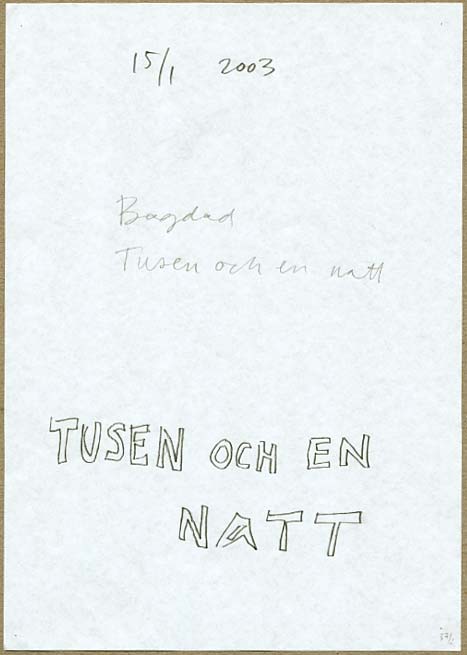 15/1 2003
Bagdad
Tusen och en natt
TUSEN OCH EN
NATT